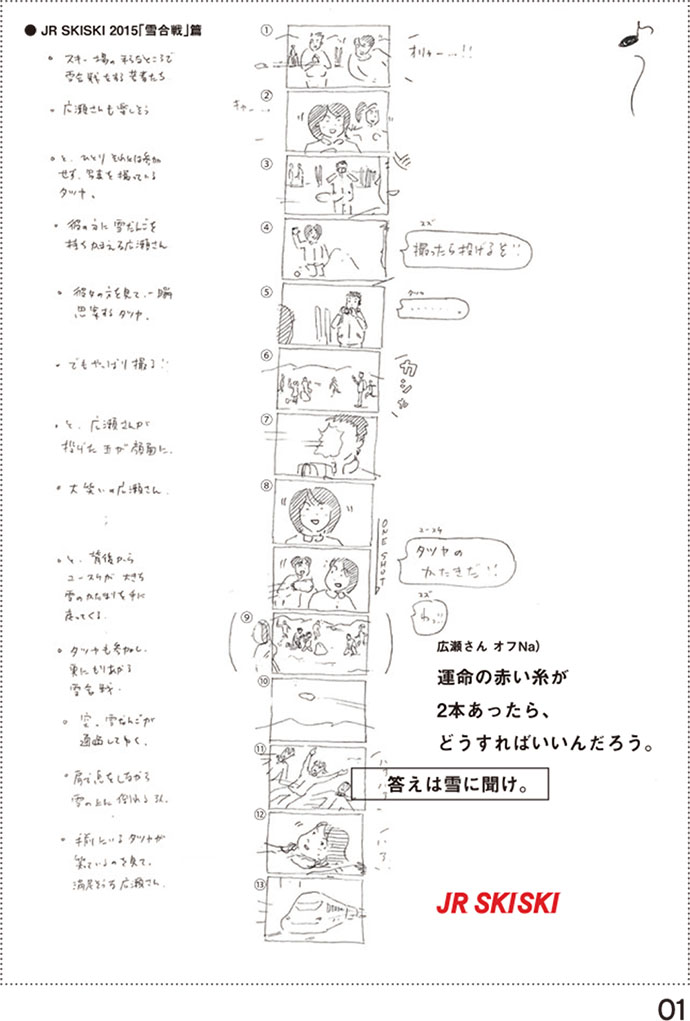 ● JR SKISKI 2015「雪合戦」篇
• スキー場の平らなところで
雪合戦をする若者たち
• 広瀬さんも楽しそう
• と、ひとりそれには参加
せず、写真を撮っている
タツヤ。
• 彼の方に雪だんごを
持ちかまえる広瀬さん
• 彼女の方を見て、一瞬
思案するタツヤ。
• でもやっぱり撮る!!
• と、広瀬さんが
投げた玉が顔面に。
• 大笑いの広瀬さん。
• と、背後から
ユースケが大きな
雪のかたまりを手に
走ってくる。
• タツヤも参加し、
更にもりあがる
雪合戦。
• 空。雪だんごが
通過してゆく。
• 肩で息をしながら
雪の上に倒れる3人。
• 横にいるタツヤが
笑っているのを見て、
満足そうな広瀬さん。
①
オリャー…!!
②
キャー…
③
④
スズ
撮ったら投げるぞ!!
⑤
タツヤ
……。
⑥
カシャ
⑦
⑧
ONE SHOT
ユースケ
タツヤの
かたきだ!!
スズ
わっ!!
⑨
⑩
⑪
⑫
⑬
広瀬さん オフNa)
運命の赤い糸が
2本あったら、
どうすればいいんだろう。
答えは雪に聞け。
JR SKISKI
01